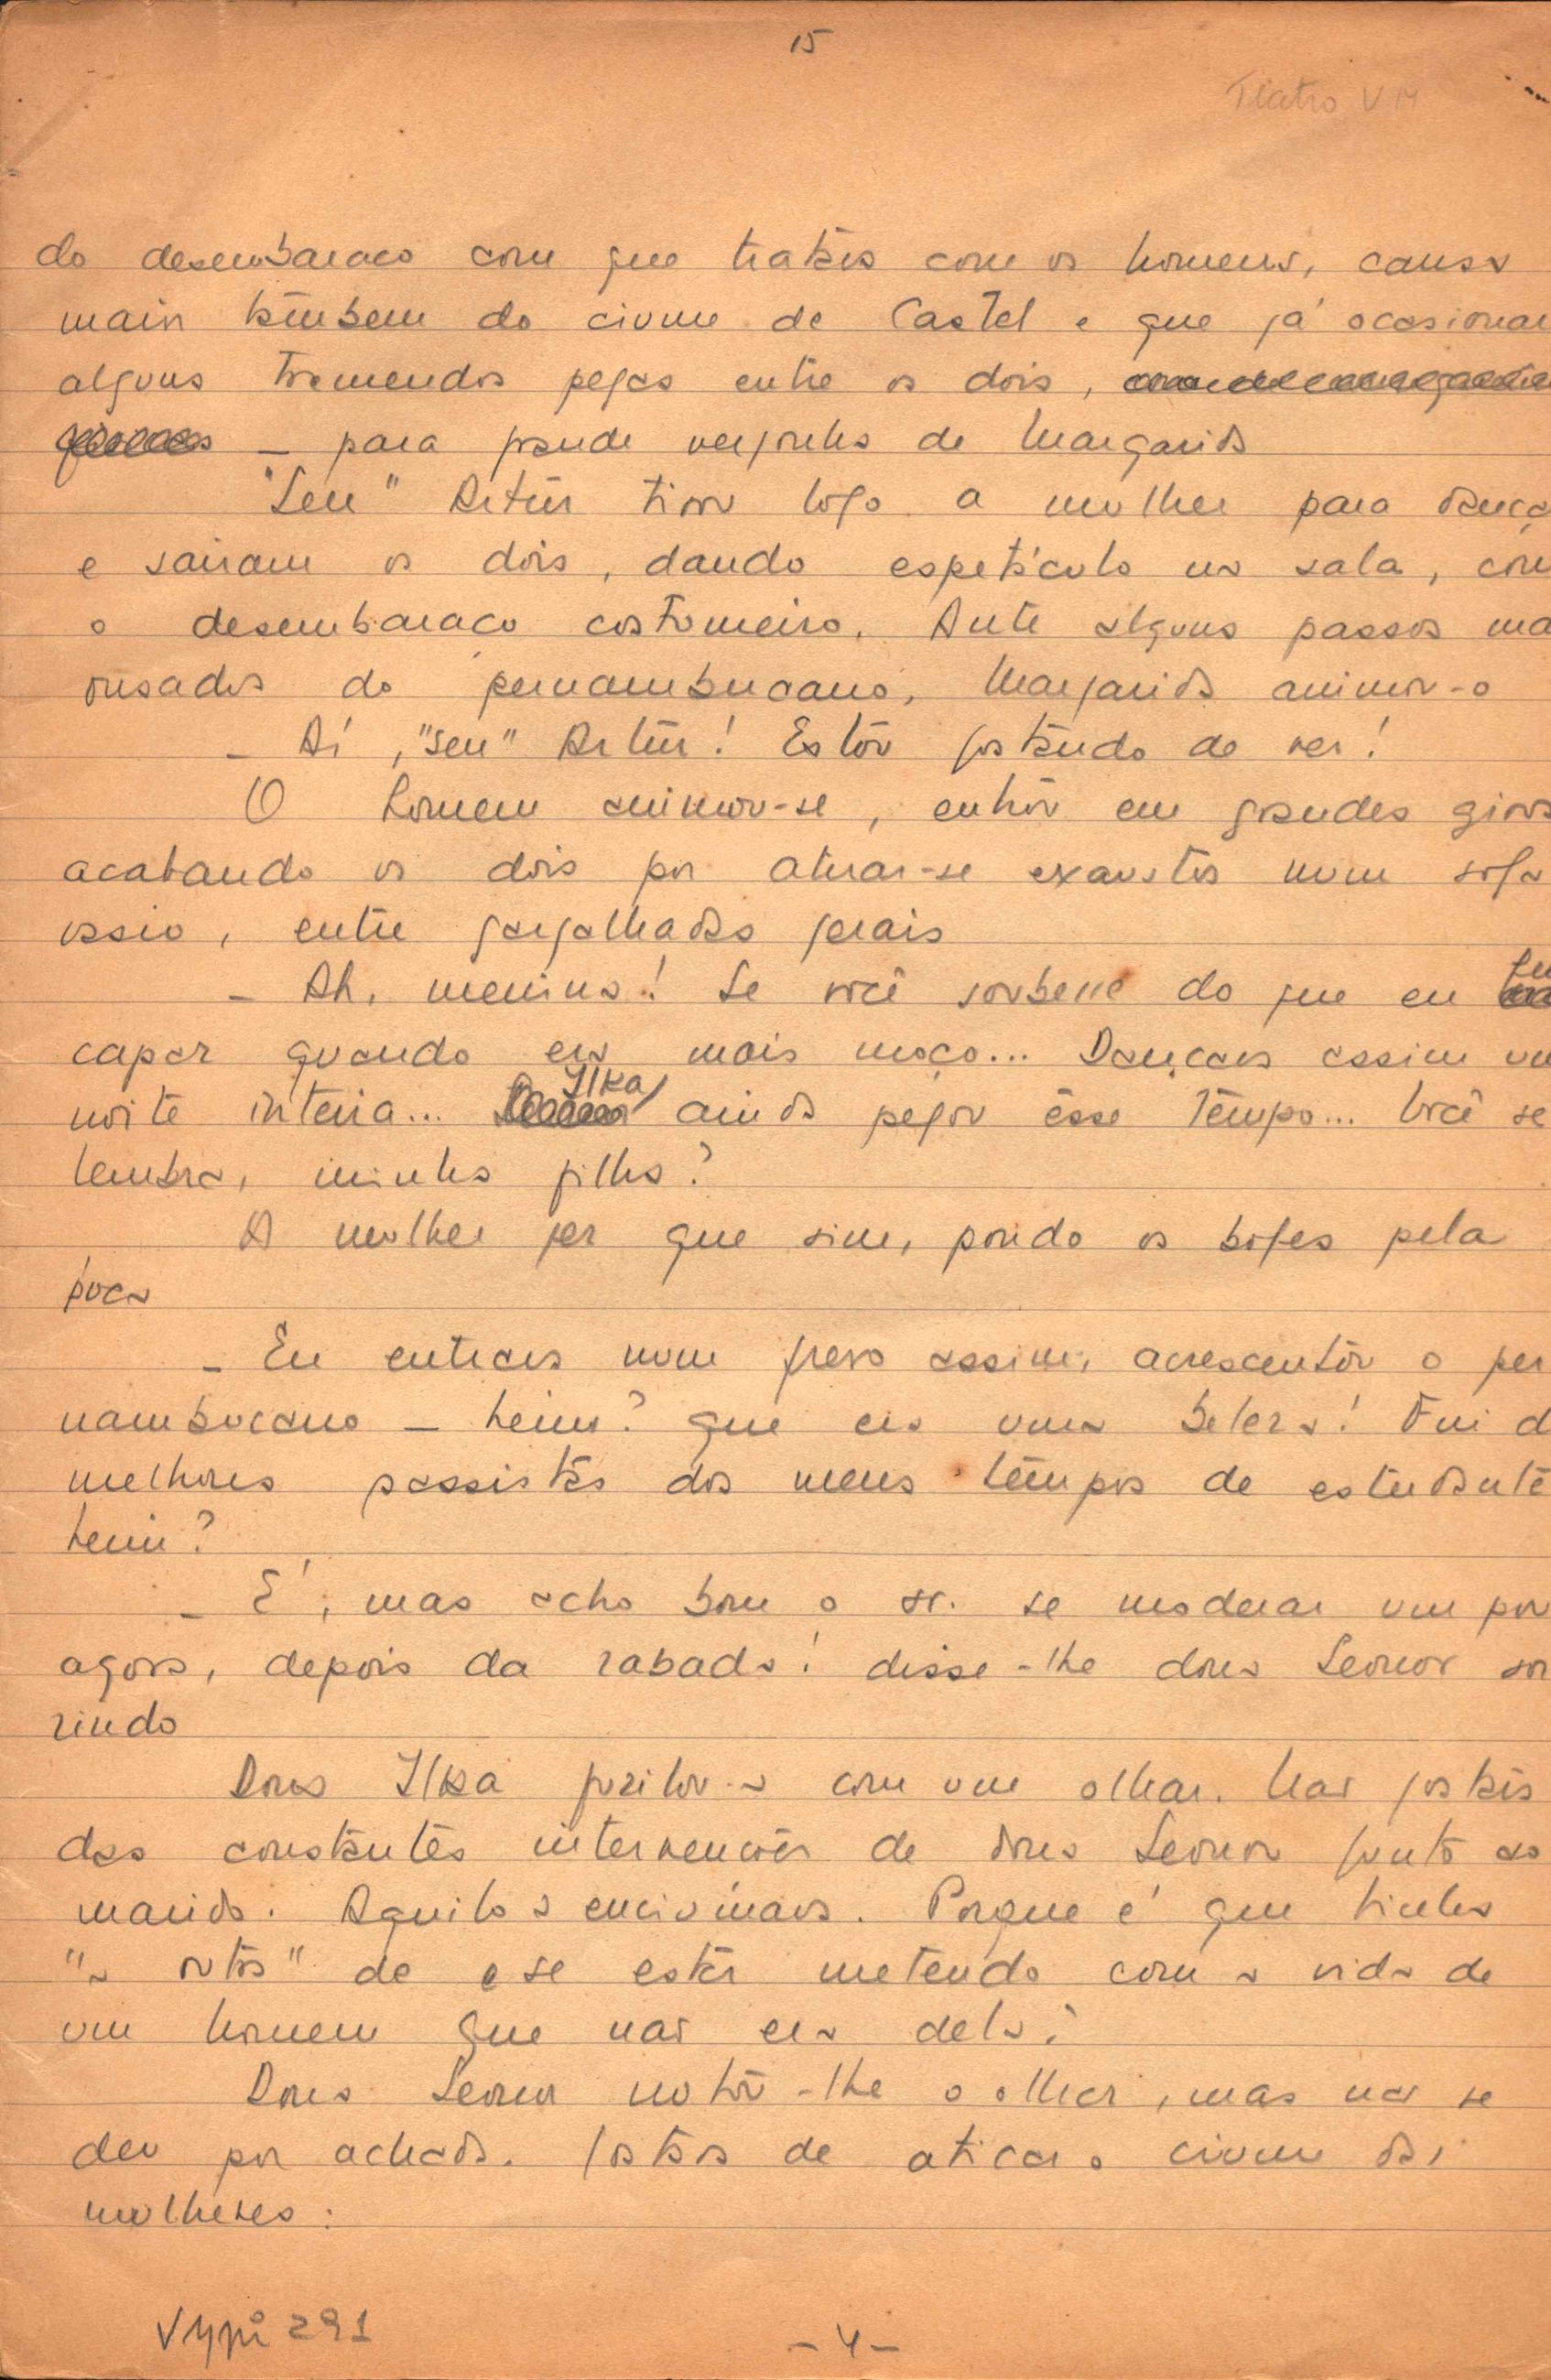 15
Teatro VM
do desembaraço com que tratava com os homens, causa
maior também do ciume de Castel e que já ocasionar
alguns tremendos pegas entre os dois,
— para grande vergonha de Margarida
"Seu" Artur tirou logo a mulher para dança
e sairam os dois, dando espetáculo na sala, com
o desembaraço costumeiro. Ante alguns passos ma
ousados do pernambucano, Margarida animou-o
— Aí, "seu" Artur! Estou gostando de ver!
O homem animou-se, entrou em grandes giros
acabando os dois por atirar-se exaustos num sofa
vasio, entre gargalhadas gerais
— Ah, menina! Se você soubesse do que eu fu
capaz quando era mais moço... Dançava assim um
noite inteira... Ilka ainda pegou êsse tempo... Você se
lembra, minha filha?
A mulher fez que sim, pondo os bofes pela
boca
— Eu entrava num frevo assim, acrescentou o per
nambucano — heim? que era uma beleza! Fui d
melhores passistas dos meus tempos de estudante
heim?
— É, mas acho bom o sr. se moderar um pou
agora, depois da rabada! disse-lhe dona Leonor sor
rindo
Dona Ilka fuzilou-a com um olhar. Não gostava
das constantes intervenções de dona Leonor junto ao
marido. Aquilo a enciumava. Porque é que tinha
"a outra" de se estar metendo com a vida de
um homem que não era dela?
Dona Leonor notou-lhe o olhar, mas não se
deu por achada. Gostava de atiçar o ciume das
mulheres:
VMpi 291
- 4 -